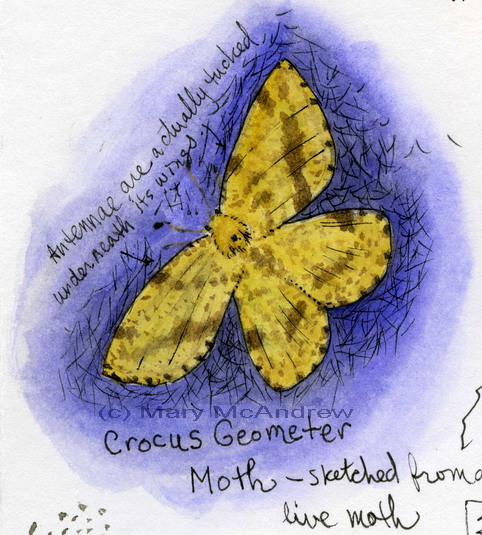 Antennae are actually tucked
underneath its wings
(c) Mary McAndrew
Crocus Geometer
Moth - sketched from a
live moth